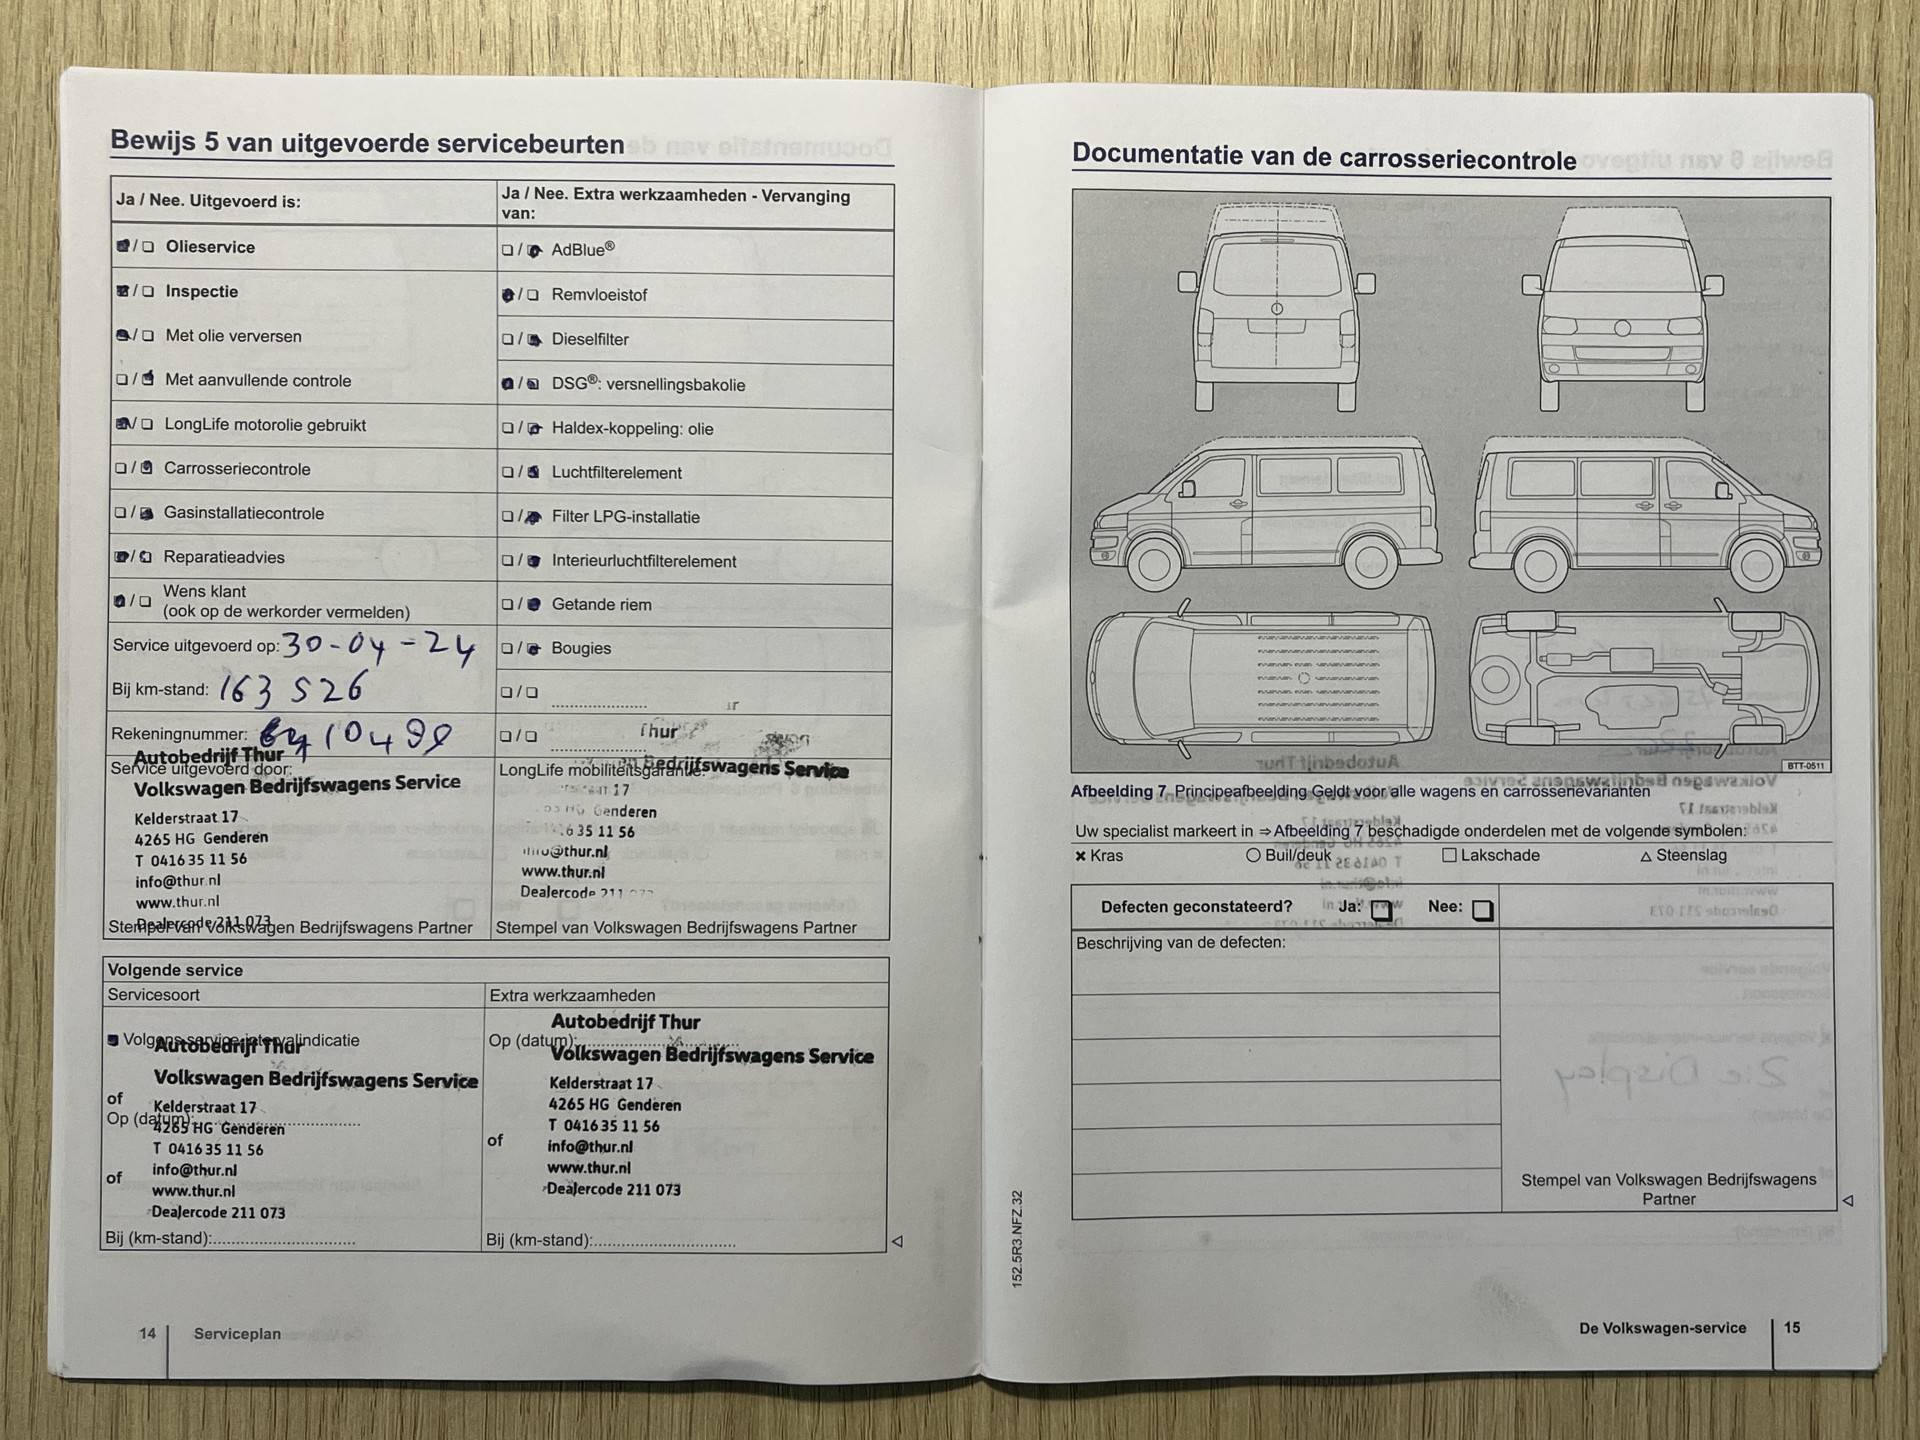 Bewijs 5 van uitgevoerde servicebeurten
Ja / Nee. Uitgevoerd is:
Olieservice
Inspectie
Met olie verversen
Met aanvullende controle
LongLife motorolie gebruikt
Carrosseriecontrole
Gasinstallatiecontrole
Reparatieadvies
Wens klant
(ook op de werkorder vermelden)
Service uitgevoerd op: 30-04-24
Bij km-stand: 163 526
Rekeningnummer:
Service uitgevoerd door:
Autobedrijf Thur
Volkswagen Bedrijfswagens Service
Kelderstraat 17
4265 HG Genderen
T 0416 35 11 56
info@thur.nl
www.thur.nl
Dealercode 211 073
Stempel van Volkswagen Bedrijfswagens Partner
Ja / Nee. Extra werkzaamheden - Vervanging
van:
AdBlue®
Remvloeistof
Dieselfilter
DSG®: versnellingsbakolie
Haldex-koppeling: olie
Luchtfilterelement
Filter LPG-installatie
Interieurluchtfilterelement
Getande riem
Bougies
Thur
LongLife mobiliteitsgarantie:
Bedrijfswagens Service
17
Genderen
35 11 56
@thur.nl
www.thur.nl
Dealercode 211
Stempel van Volkswagen Bedrijfswagens Partner
Volgende service
Servicesoort
Volgens service-intervalindicatie
Autobedrijf Thur
Volkswagen Bedrijfswagens Service
of
Kelderstraat 17
Op (datum):
4265 HG Genderen
T 0416 35 11 56
of
info@thur.nl
www.thur.nl
Dealercode 211 073
Bij (km-stand):
Extra werkzaamheden
Autobedrijf Thur
Op (datum):
Volkswagen Bedrijfswagens Service
Kelderstraat 17
4265 HG Genderen
T 0416 35 11 56
of
info@thur.nl
www.thur.nl
Dealercode 211 073
Bij (km-stand):
14 Serviceplan
Documentatie van de carrosseriecontrole
BTT-0511
Afbeelding 7 Principeafbeelding Geldt voor alle wagens en carrosserievarianten
Uw specialist markeert in ⇒ Afbeelding 7 beschadigde onderdelen met de volgende symbolen:
Kras
Buil/deuk
Lakschade
Steenslag
Defecten geconstateerd? Ja: Nee:
Beschrijving van de defecten:
Stempel van Volkswagen Bedrijfswagens
Partner
152.5R3.NFZ.32
De Volkswagen-service 15